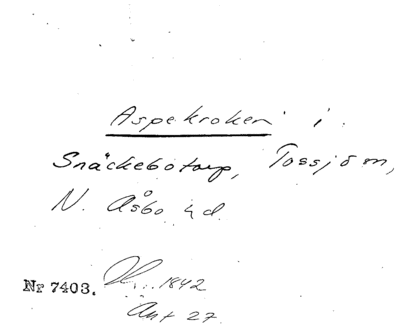 Aspekroken i
Snäckebotorp, Tossjöm,
N. Åsbo hd.
Nr 7403. 1842
Ant 27